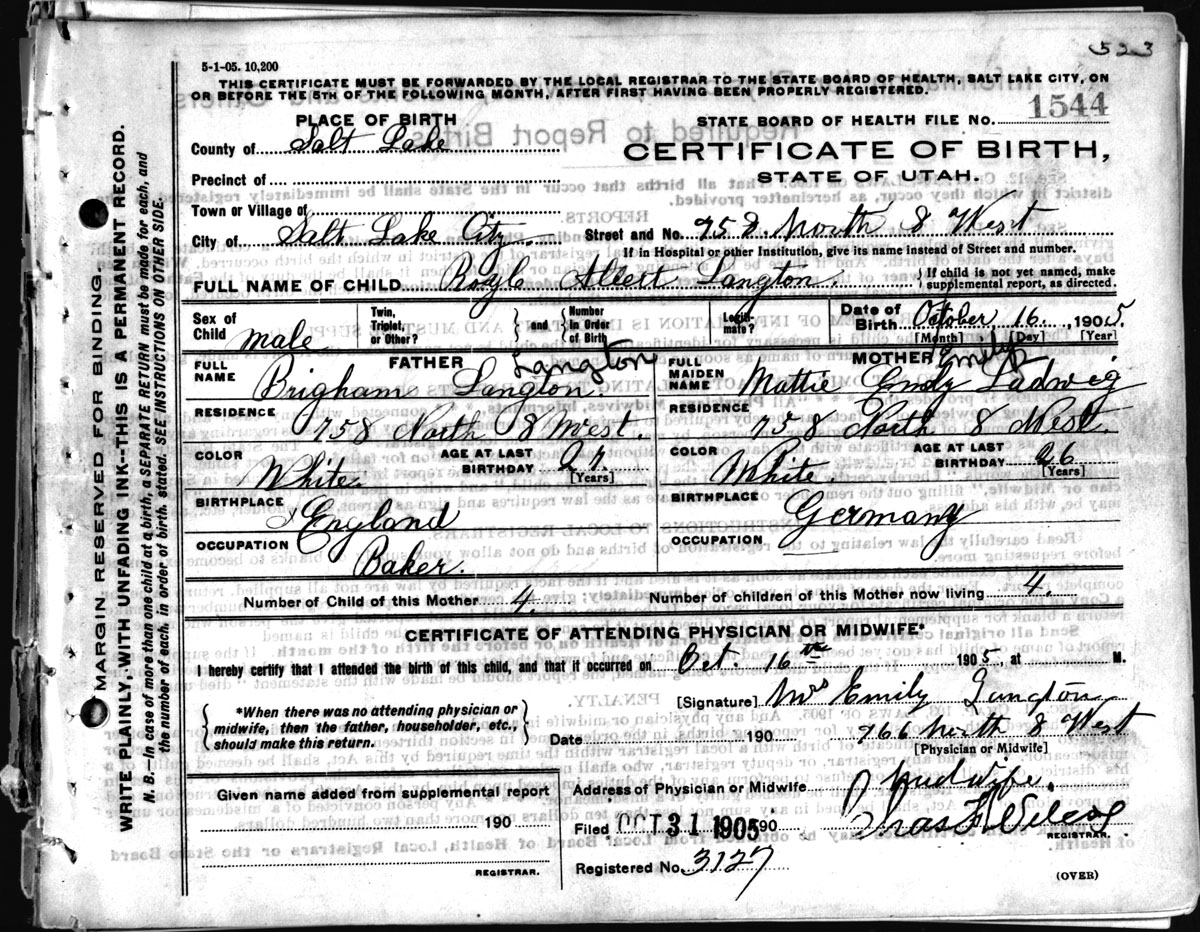 523
5-1-05. 10,200
THIS CERTIFICATE MUST BE FORWARDED BY THE LOCAL REGISTRAR TO THE STATE BOARD OF HEALTH, SALT LAKE CITY, ON
OR BEFORE THE 5TH OF THE FOLLOWING MONTH, AFTER FIRST HAVING BEEN PROPERLY REGISTERED.
MARGIN RESERVED FOR BINDING.
WRITE PLAINLY, WITH UNFADING INK--THIS IS A PERMANENT RECORD.
N. B.—In case of more than one child at a birth, a SEPARATE RETURN must be made for each, and
the number of each, in order of birth, stated. SEE INSTRUCTIONS ON OTHER SIDE.
PLACE OF BIRTH
STATE BOARD OF HEALTH FILE NO. 1544
County of Salt Lake
CERTIFICATE OF BIRTH,
STATE OF UTAH.
Precinct of
Town or Village of
City of Salt Lake City. Street and No. 758 North 8 West
If in Hospital or other Institution, give its name instead of Street and number.
FULL NAME OF CHILD Albert Langton. { If child is not yet named, make
supplemental report, as directed.
Sex of Child male
Twin, Triplet, or Other? { and } Number in Order of Birth
Legitimate?
Date of Birth October 16, 1905.
[Month] [Day] [Year]
FATHER Langton
FULL NAME Brigham Langton.
MOTHER Emily
FULL MAIDEN NAME Mattie Emily Ladweig
RESIDENCE 758 North 8 West.
RESIDENCE 758 North 8 West
COLOR White. AGE AT LAST BIRTHDAY [Years]
COLOR White. AGE AT LAST BIRTHDAY 26 [Years]
BIRTHPLACE England
BIRTHPLACE Germany
OCCUPATION Baker.
OCCUPATION
Number of Child of this Mother 4. Number of children of this Mother now living 4.
CERTIFICATE OF ATTENDING PHYSICIAN OR MIDWIFE*
I hereby certify that I attended the birth of this child, and that it occurred on Oct. 16th 1905, at M.
{ *When there was no attending physician or
midwife, then the father, householder, etc.,
should make this return. }
[Signature] Mrs Emily Langton
Date 190 766 North 8 West
[Physician or Midwife]
Given name added from supplemental report
190
REGISTRAR.
Address of Physician or Midwife Midwife.
Filed OCT 31 1905 190
REGISTRAR.
Registered No. 3127
(OVER)